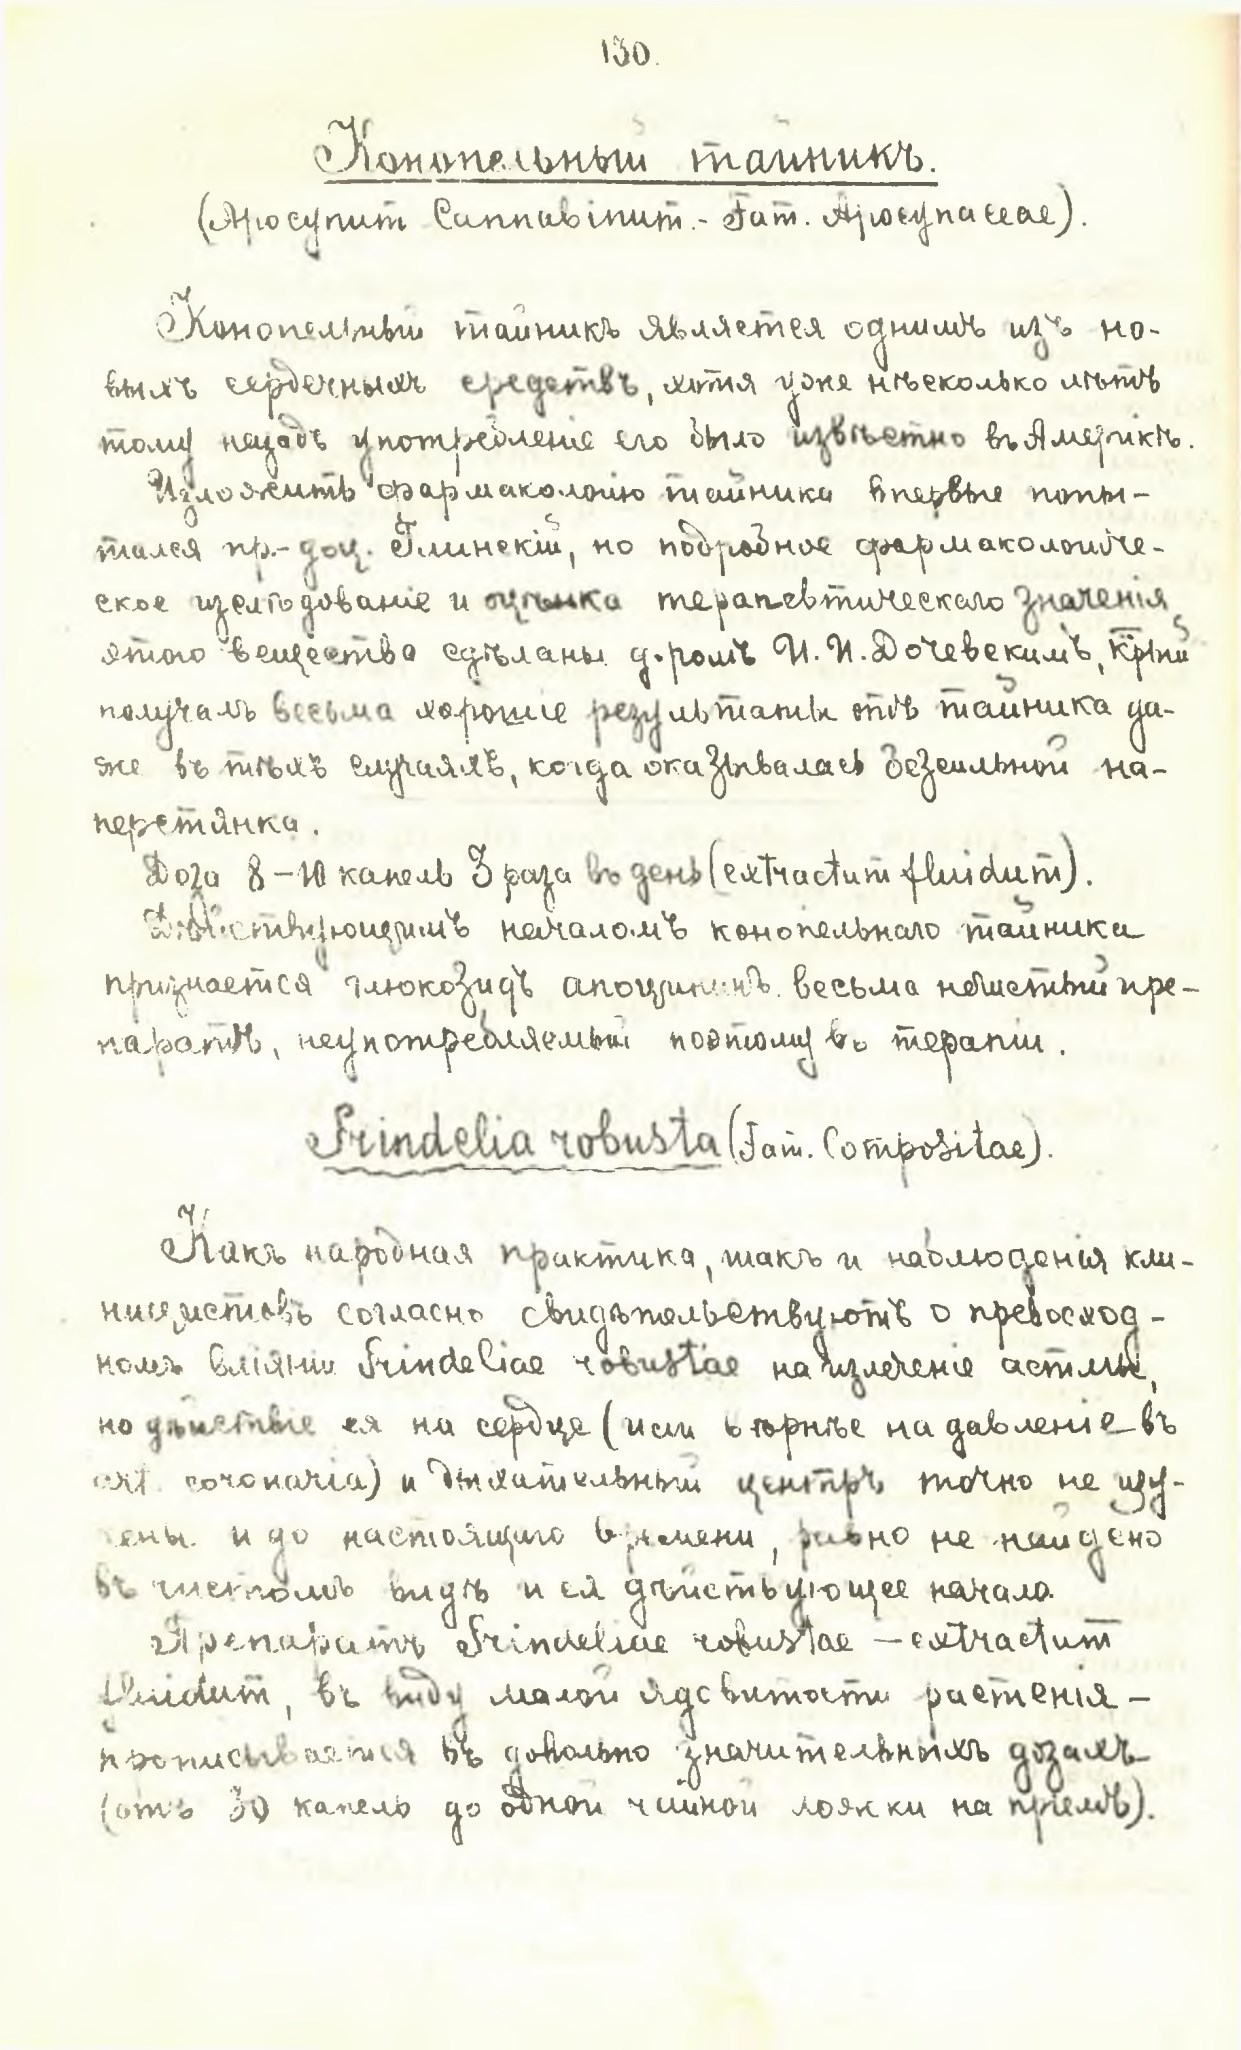 130.
Конопельный тайникъ.
(Apocynum Cannabinum.- Fam. Apocynaceae).
Конопельный тайникъ является однимъ изъ но-
выхъ сердечныхъ средствъ, хотя уже нѣсколько лѣтъ
тому назадъ употребленіе его было извѣстно въ Америкѣ.
Изложить фармакологію тайника впервые попы-
тался пр.-доц. Глинскій, но подробное фармакологиче-
ское изслѣдованіе и оцѣнка терапевтическаго значенія
этого вещества сдѣланы д-ромъ И. И. Дочевскимъ, к̅рый
получалъ весьма хорошіе результаты отъ тайника да-
же въ тѣхъ случаяхъ, когда оказывалась безсильной на-
перстянка.
Доза 8-10 капель 3 раза въ день (extractum fluidum).
Дѣйствующимъ началомъ конопельнаго тайника
признается глюкозидъ апоцининъ. весьма нечистый пре-
паратъ, неупотребляемый поэтому въ терапіи.
Grindelia robusta (Fam. Compositae).
Какъ народная практика, такъ и наблюденія кли-
ницистовъ согласно свидѣтельствуютъ о превосход-
номъ вліяніи Grindeliae robustae на излеченіе астмы,
но дѣйствіе ея на сердце (или вѣрнѣе на давленіе въ
art. coronaria) и дыхательный центръ точно не изу-
чены и до настоящаго времени, равно не найдено
въ чистомъ видѣ и ея дѣйствующее начало
Препаратъ Grindeliae robustae - extractum
fluidum, въ виду малой ядовитости растенія -
прописывается въ довольно значительныхъ дозахъ
(отъ 30 капель до одной чайной ложки на пріемъ).